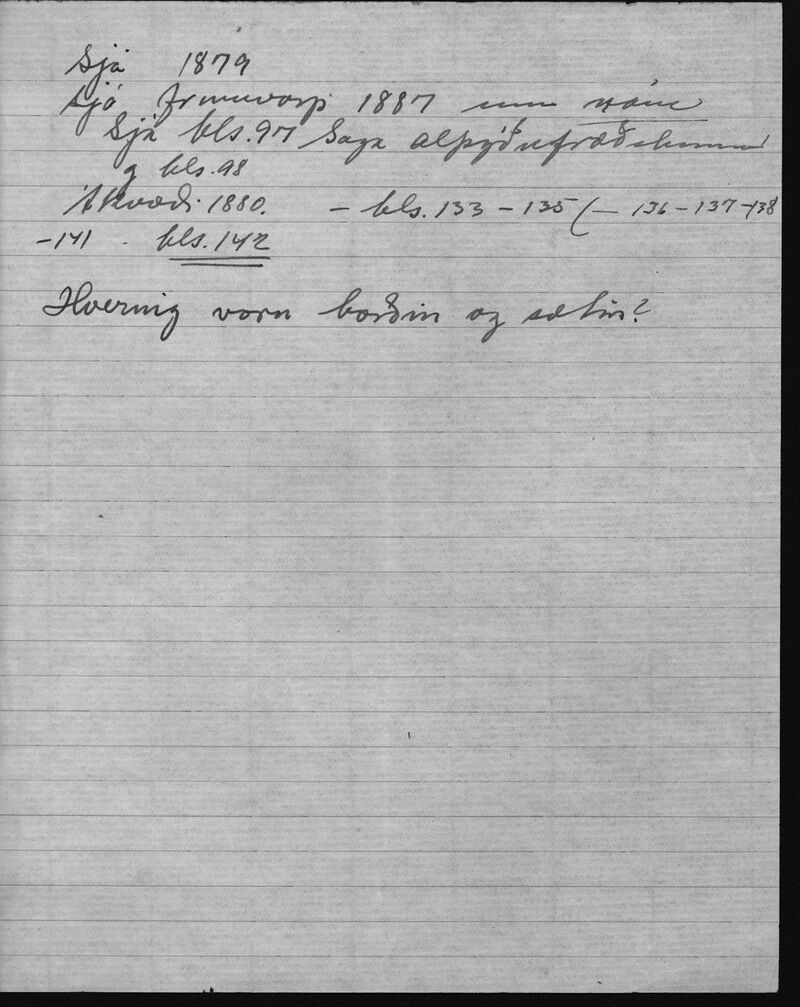 Sjá 1879
Sjá frumvarp 1887 um nám
Sjá bls. 97 Saga alþýðufræðslunnar
og bls. 98
Ákvæði 1880. – bls. 133 – 135 (– 136 – 137 – 138
– 141 . bls. 142
Hvernig voru borðin og sætin?